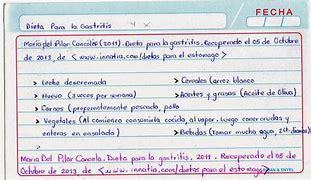 FECHA
Dieta Para la Gastritis
Maria del Pilar Cancelas (2011). Dieta para la gastritis. Recuperado el 05 de Octubre
de 2013 de <www.innatia.com/dietas para el estomago>
➤ Leche descremada
➤ Cereales (arroz blanco
➤ Huevo (3 veces por semana)
➤ Aceites y grasas (Aceite de Oliva)
➤ Carnes (preferentemente pescado, pollo
➤ Vegetales (Al comienzo consumirla cocida, al vapor. Luego consumir crudas y
enteras en ensalada)
➤ Bebidas (Tomar mucha agua, 2 Lt. diarios)
Maria Del Pilar Cancela. Dieta para la gastritis, 2011. Recuperado el 05 de
Octubre de 2013 de <www.innatia.com/dietas para el estomago>